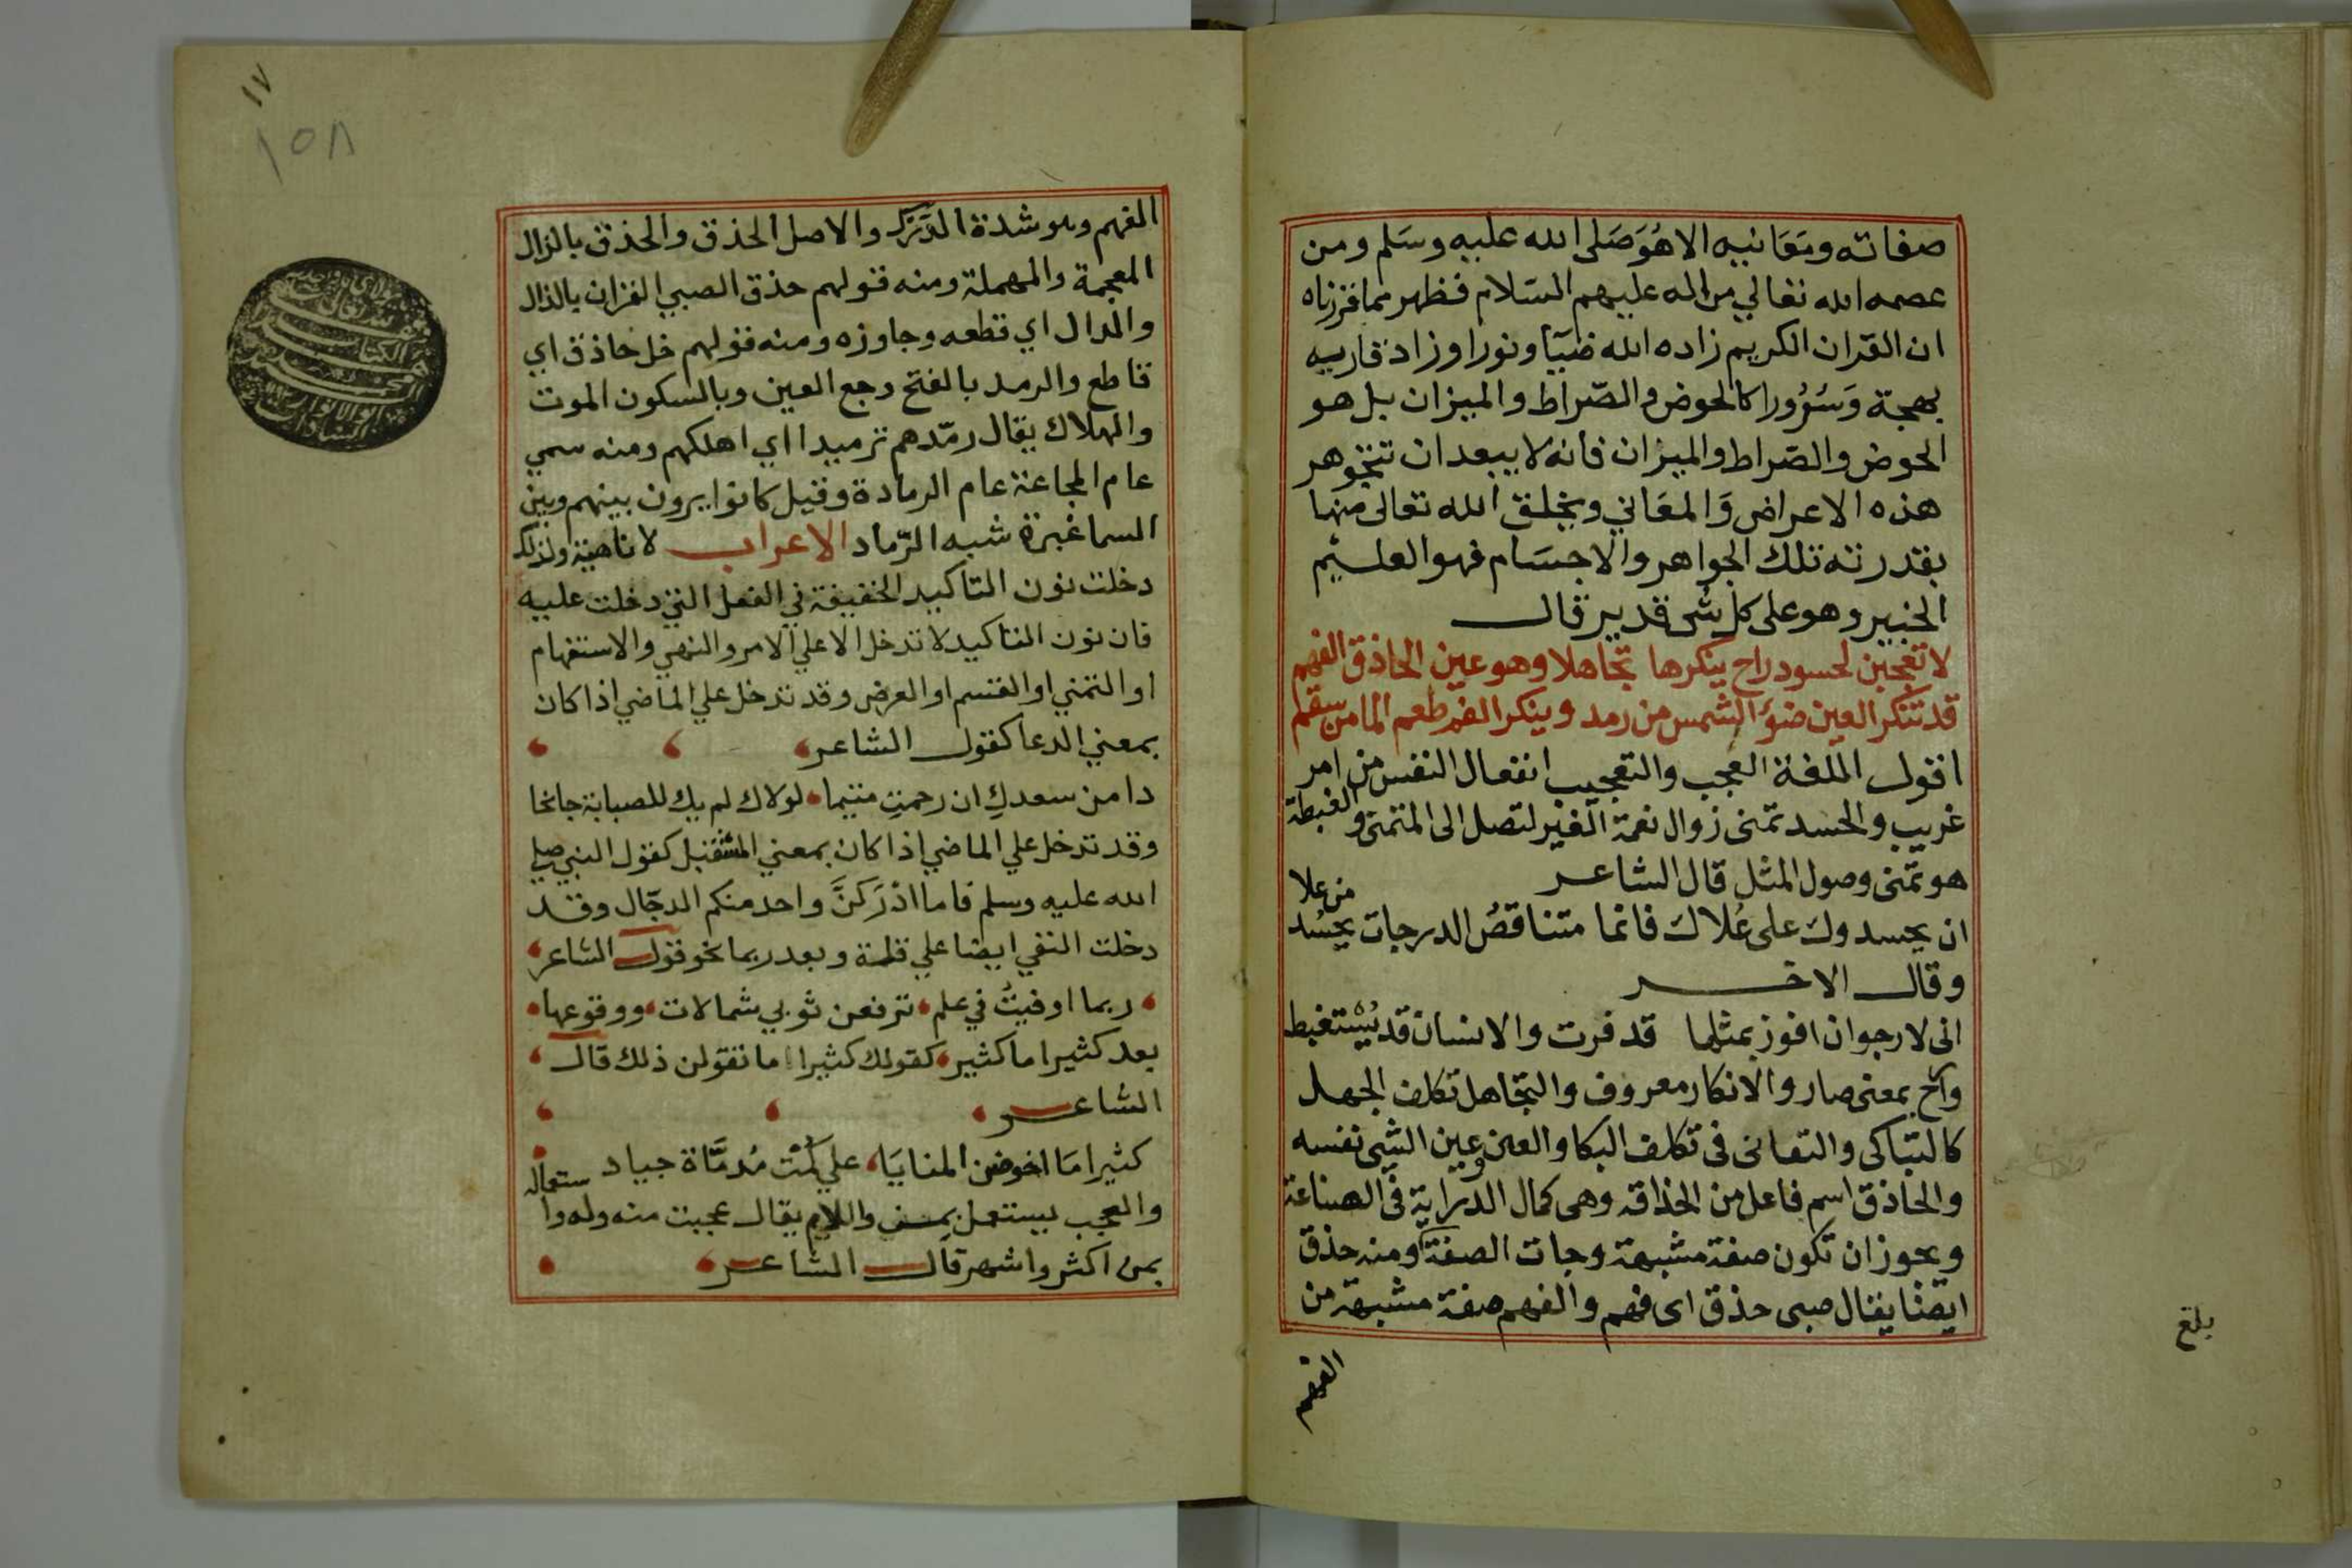 صفاته ومعانيه الا هُوَ صَلى الله عليه وسَلم ومن
عصمه الله تعالي من اله عليهم السَلام فظهر مما قررناه
ان القرآن الكريم زاده الله ضيَآ ونورا وزاد قاريه
بهجة وَسُرُورا كالحوض والصّراط والميزان بل هو
الحوض والصّراط والميزان فانه لا يبعد ان تتجوهر
هذه الاعراض وَالمعَاني ويخلق الله تعالى منها
بقدرته تلك الجواهر والاجسَام فهو العليم
الخبير وهو على كل شى قدير قال
لا تعجبن لحسود راح ينكرها تجاهلا وهو عين الحاذق الفهم
قد تنكر العين ضؤَ الشمس من رمد وينكر الفم طعم الما من سقم
اقول اللغة العجب والتعجيب انفعال النفس من امر
غريب والحسد تمنى زوال نعمة الغير لتصل الى المتمنى والغبطة
هو تمنى وصول المثل قال الشاعر
ان يحسدوك على عُلاكَ فانما متناقصُ الدرجات يحسُد من علا
وقال الاخر
انى لارجو ان افوز بمثلها قد فرت والانسان قد يُستغبط
وراح بمعنى صار والانكار معروف والتجاهل تكلف الجهل
كالتباكى والتعانى فى تكلف البكا والعين وعين الشى نفسه
والحاذق اسم فاعل من الحذاقه وهى كمال الدراية فى الصناعة
ويجوز ان تكون صفة مشبهة وجات الصفة ومنه حذق
ايضا يقال صبى حذق اى فهم والفهم صفة مشبهة من
الفهم
بلغ
١٧
١٥٨
الفهم وهو شدة الدَّرَك والاصل الحذق والحذق بالذال
المعجمة والمهملة ومنه قولهم حذق الصبي القران بالذال
والدال اي قطعه وجاوزه ومنه قولهم خل حاذق اي
قاطع والرمد بالفتح وجع العين وبالسكون الموت
والهلاك يقال رمّدهم ترميدا اي اهلكهم ومنه سمي
عام المجاعة عام الرمادة وقيل كانوا يرون بينهم وبين
السما غبرة شبه الرّماد الاعراب لا ناهية ولذلك
دخلت نون التاكيد الخفيفة في الفعل التي دخلت عليه
فان نون التاكيد لا تدخل الا علي الامر والنهي والاستفهام
او التمني او القسم او العرض وقد تدخل علي الماضي اذا كان
بمعني الدعا كقول الشاعر
دامن سعدكِ ان رحمتِ متيما لولاك لم يك للصبابة جانحا
وقد تدخل علي الماضي اذا كان بمعني المستقبل كقول النبي صلي
الله عليه وسلم فاما ادْرَكنَّ واحد منكم الدجّال وقد
دخلت النفي ايضا علي قلة وبعد ربما نحو قول الشاعر
ربما اوفيتُ في علم ترفعن ثوبي شمالات ووقوعها
بعد كثيرا ما كثير كقولك كثيرا ما تقولن ذلك قال
الشاعر
كثيرا مَا اخوضن المنايَا علي كُمْت مُدمَّاة جياد
والعجب يستعمل بمن واللام يقال عجبت منه وله واستعماله
بمن اكثر واشهر قال الشاعر